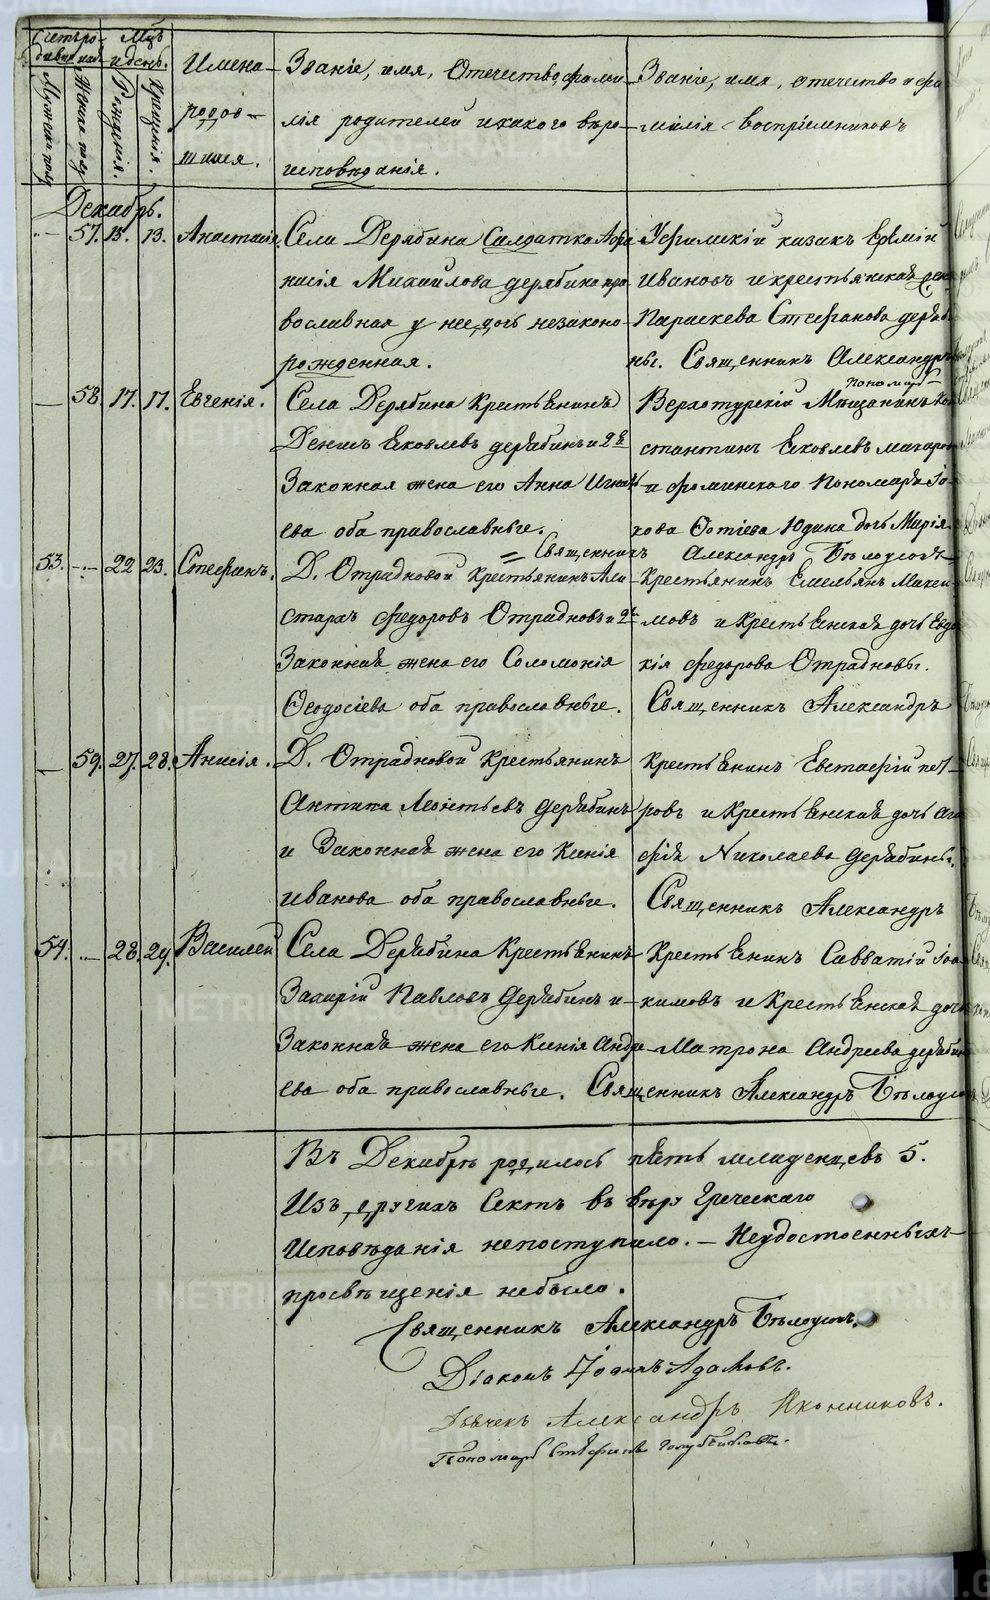 Счетъ ро-
дивших
Мцъ
и день.
Имена
родо-
шихся.
Званіе, имя, отечество, фами-
лія родителей и какого вѣро-
исповѣданія.
Званіе, имя, отечество и фа-
милія воспріемниковъ
Мужеска полу
Женска полу
Рожденія.
Крещенія.
Декабрь.
57. 13. 13. Анастасія
Села Дерябина Салдатка Афа-
насія Михайлова дерябина пра-
вославная у нее дочь незаконо-
рожденная.
Уфимскій казакъ Еремій
Ивановъ и крестьянская
Параскева Стефанова деряб
ны. Священникъ Александръ
58. 17. 17. Евгенія.
Села Дерябина Крестьенинъ
Денисъ Яковлевъ дерябинъ и
Законная жена его Анна Игнать
ева оба православные.
пономарь
Верхотурскій Мѣщанинъ Кон
стантинъ Яковлевъ макаров
и фоминского Пономаря Іа-
кова Фотіева Юдина дочь Марія.
Священникъ Александръ Бѣлоусовъ
53. 22 23. Стефанъ.
Д. Отрадновой крестьянинъ Ари-
стархъ федоровъ Отрадновъ и
Законная жена его Соломонія
Феодосіева оба православные.
Крестьянинъ Емельянъ Макси-
мовъ и Крестьенская дочь Евдо
кія федорова Отрадновы.
Священникъ Александръ
59. 27. 28. Анисія.
Д. Отрадновой крестьянинъ
Антипа Леонтьевъ дерябинъ
и Законная жена его Ксенія
иванова оба православные.
Крестьенинъ Евстафій пет-
ровъ и Крестьенская дочь Ага
фія Николаева Дерябины.
Священникъ Александръ
54. 28. 29. Василей
Села Дерябина Крестьенинъ
Захарій Павловъ Дерябинъ и
Законная жена его Ксенія Андре
ева оба православные.
Крестьенинъ Савватій Іоа-
кимовъ и Крестьенская дочь
Матрона Андреева дерябин
Священникъ Александръ Бѣлоусов
Въ Декабрѣ родилось пять младенцевъ 5.
Изъ другихъ Сектъ въ вѣру Греческаго
Исповѣданія непоступило. — Неудостоенныхъ
просвѣщенія небыло.
Священникъ Александръ Бѣлоусовъ.
Діаконъ Іоаннъ Адамовъ.
Дьячекъ Александръ Иконниковъ.
Пономарь Стефанъ
METRIKI.GASO-URAL.RU